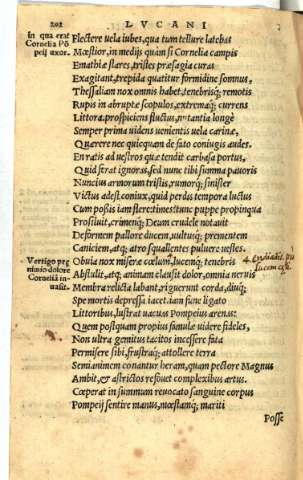 202 LVCANI
In qua erat
Cornelia Põ
peij uxor.
Flectere uela iubes, qua tum tellure latebas
Mœstior, in medijs quàm si Cornelia campis
Emathiæ stares, tristes præsagia curas
Exagitant, trepida quatitur formidine somnus,
Thessaliam nox omnis habet, tenebrisq; remotis
Rupis in abruptæ scopulos, extremaq; currens
Littora, prospiciens fluctus, nutantia longè
Semper prima uides uenientis uela carinæ,
Quærere nec quicquam de fato coniugis audes.
En ratis ad uestros quæ tendit carbasa portus,
Quid ferat ignoras, sed nunc tibi summa pauoris
Nuncius armorum tristis, rumorq; sinister
Victus adest coniux, quid perdis tempora luctus
Cum possis iam flere: times: tunc puppe propinqua
Prosiluit, crimenq; Deum crudele notauit
Deformem pallore ducem, uultusq; prementem
Caniciem, atq; atro squallentes puluere uestes.
Vertigo præ
nimio dolore
Corneliã in-
uasit.
Obuia nox miseræ cœlum, lucemq; tenebris
Abstulit, atq; animam clausit dolor, omnia neruis
Membra relicta labant, riguerunt corda, diuq;
Spe mortis depressa iacet. iam fune ligato
Littoribus, lustrat uacuas Pompeius arenas:
Quem postquam propius famulæ uidere fideles,
Non ultra gemitus tacitos incessere fata
Permisere sibi, frustraq; attollere terra
Semanimem conantur heram, quam pectore Magnus
Ambit, & astrictos refouet complexibus artus.
Cœperat in summum reuocato sanguine corpus
Pompeij sentire manus, mœstamq; mariti
Posse